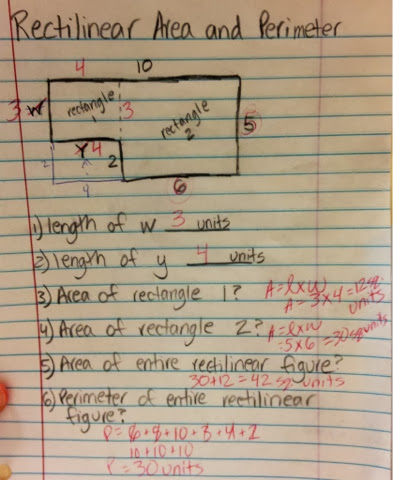 Rectilinear Area and Perimeter
4 10
3 W rectangle 1 3 rectangle 2 5
y 4
2 2
4 6
1) length of w 3 units
2) length of y 4 units
3) Area of rectangle 1? A = l x w
A = 3 x 4 = 12 sq. units
4) Area of rectangle 2? A = l x w
= 5 x 6 = 30 sq units
5) Area of entire rectilinear figure?
30 + 12 = 42 sq units
6) Perimeter of entire rectilinear
figure?
10 + 10 + 10
P = 30 units